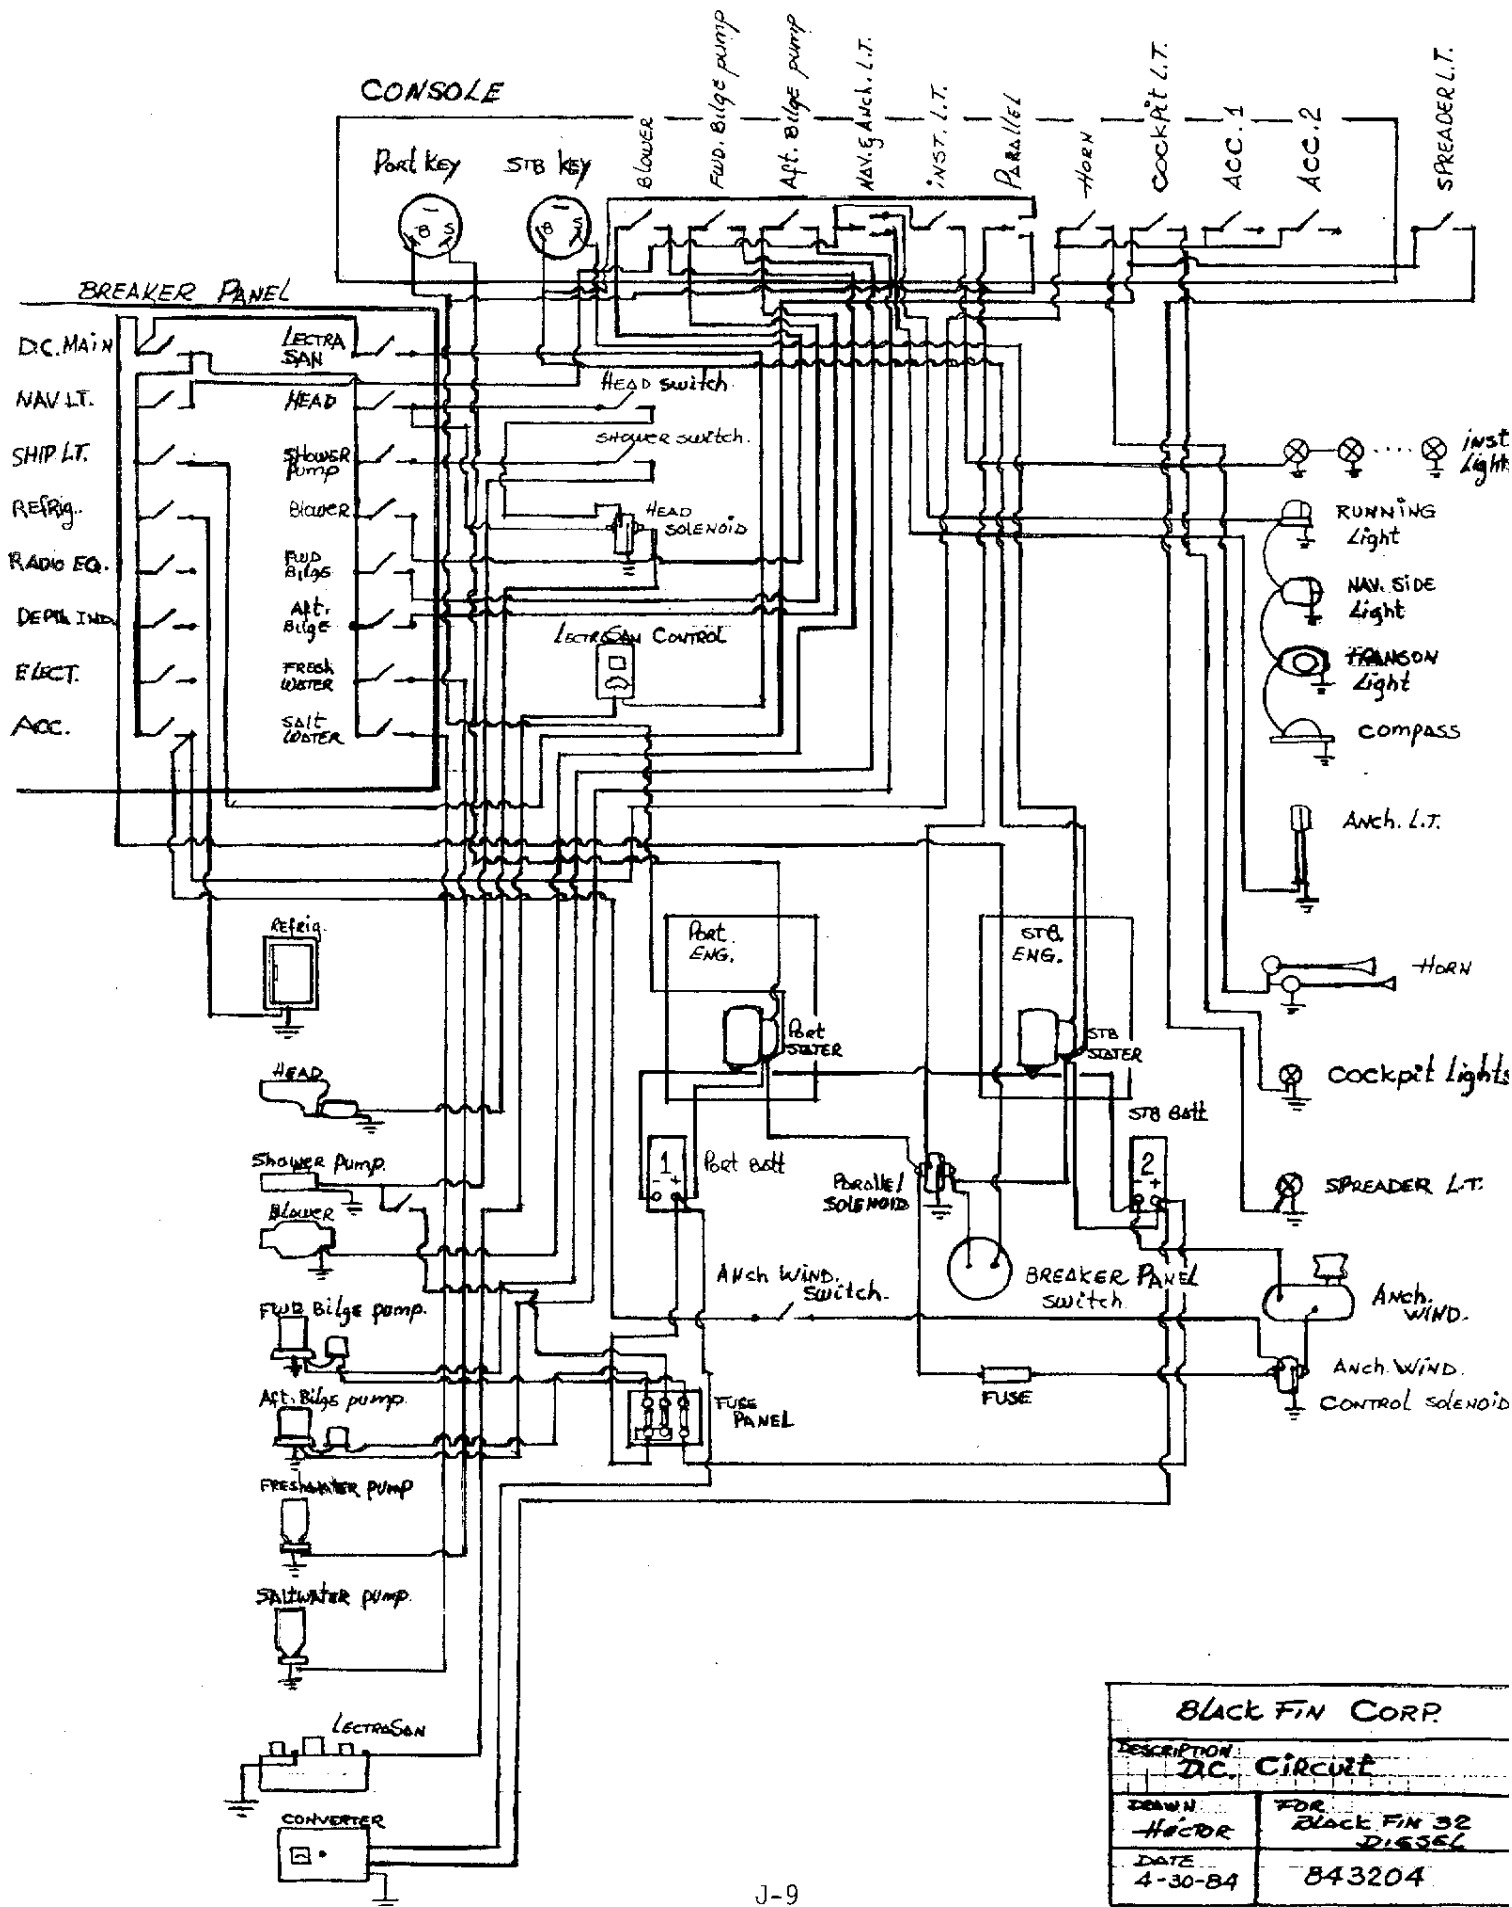 CONSOLE
Port Key
STB Key
Blower
FWD. Bilge pump
Aft. Bilge pump
NAV. & Anch. L.T.
INST. L.T.
PARALLEL
HORN
COCKPIT L.T.
ACC. 1
ACC. 2
SPREADER L.T.
B S
B S
BREAKER PANEL
D.C. MAIN
NAV LT.
SHIP LT.
REFRIG.
RADIO EQ.
DEPTH IND.
ELECT.
ACC.
LECTRA
SAN
HEAD
SHOWER
PUMP
Blower
FWD
Bilge
Aft.
Bilge
FRESH
WATER
SALT
WATER
HEAD switch
SHOWER switch.
HEAD
SOLENOID
LECTRASAN CONTROL
inst.
Lights
RUNNING
Light
NAV. SIDE
Light
TRANSON
Light
COMPASS
Anch. L.T.
HORN
COCKPIT Lights
SPREADER L.T.
Anch.
WIND.
Anch. WIND.
CONTROL SOLENOID
Refrig.
HEAD
Shower pump.
Blower
FWD Bilge pump.
Aft. Bilge pump.
FRESHWATER PUMP
SALTWATER pump.
LECTRASAN
CONVERTER
Port
ENG.
Port
STATER
STB.
ENG.
STB
STATER
1
- +
Port Batt
STB Batt
2
- +
PARALLEL
SOLENOID
BREAKER PANEL
Switch
Anch WIND.
Switch.
FUSE
FUSE
PANEL
BLACK FIN CORP.
DESCRIPTION:
D.C. CIRCUIT
DRAWN
HECTOR
FOR
BLACK FIN 32
DIESEL
DATE
4-30-84
843204
J-9